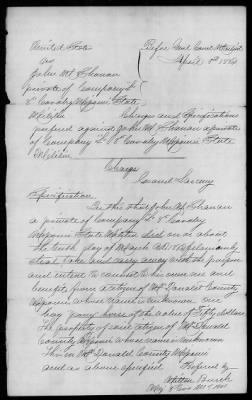 United States
vs
John M Shanan
private of Company L
8" Cavalry Missouri State
Militia
Before Genl Court Martial
April 8th 1864
Charges and Specifications
prefered against John M Shanan a private
of Company L 8" Cavalry Missouri State
Militia
Charge
Grand Larceny
Specification
In this that John M Shanan
a private of Company L 8" Cavalry
Missouri State Militia did on or about
the tenth day of March AD 1864 feloniously
steal take and carry away with the purpose
and intent to convert to his own use and
benefit from a citizen of McDonald County
Missouri whose name is unknown one
bay pony horse of the value of fifty dollars
the property of said citizen of McDonald
County Missouri whose name is unknown
this in McDonald County Missouri
and as above specified
Prefered by